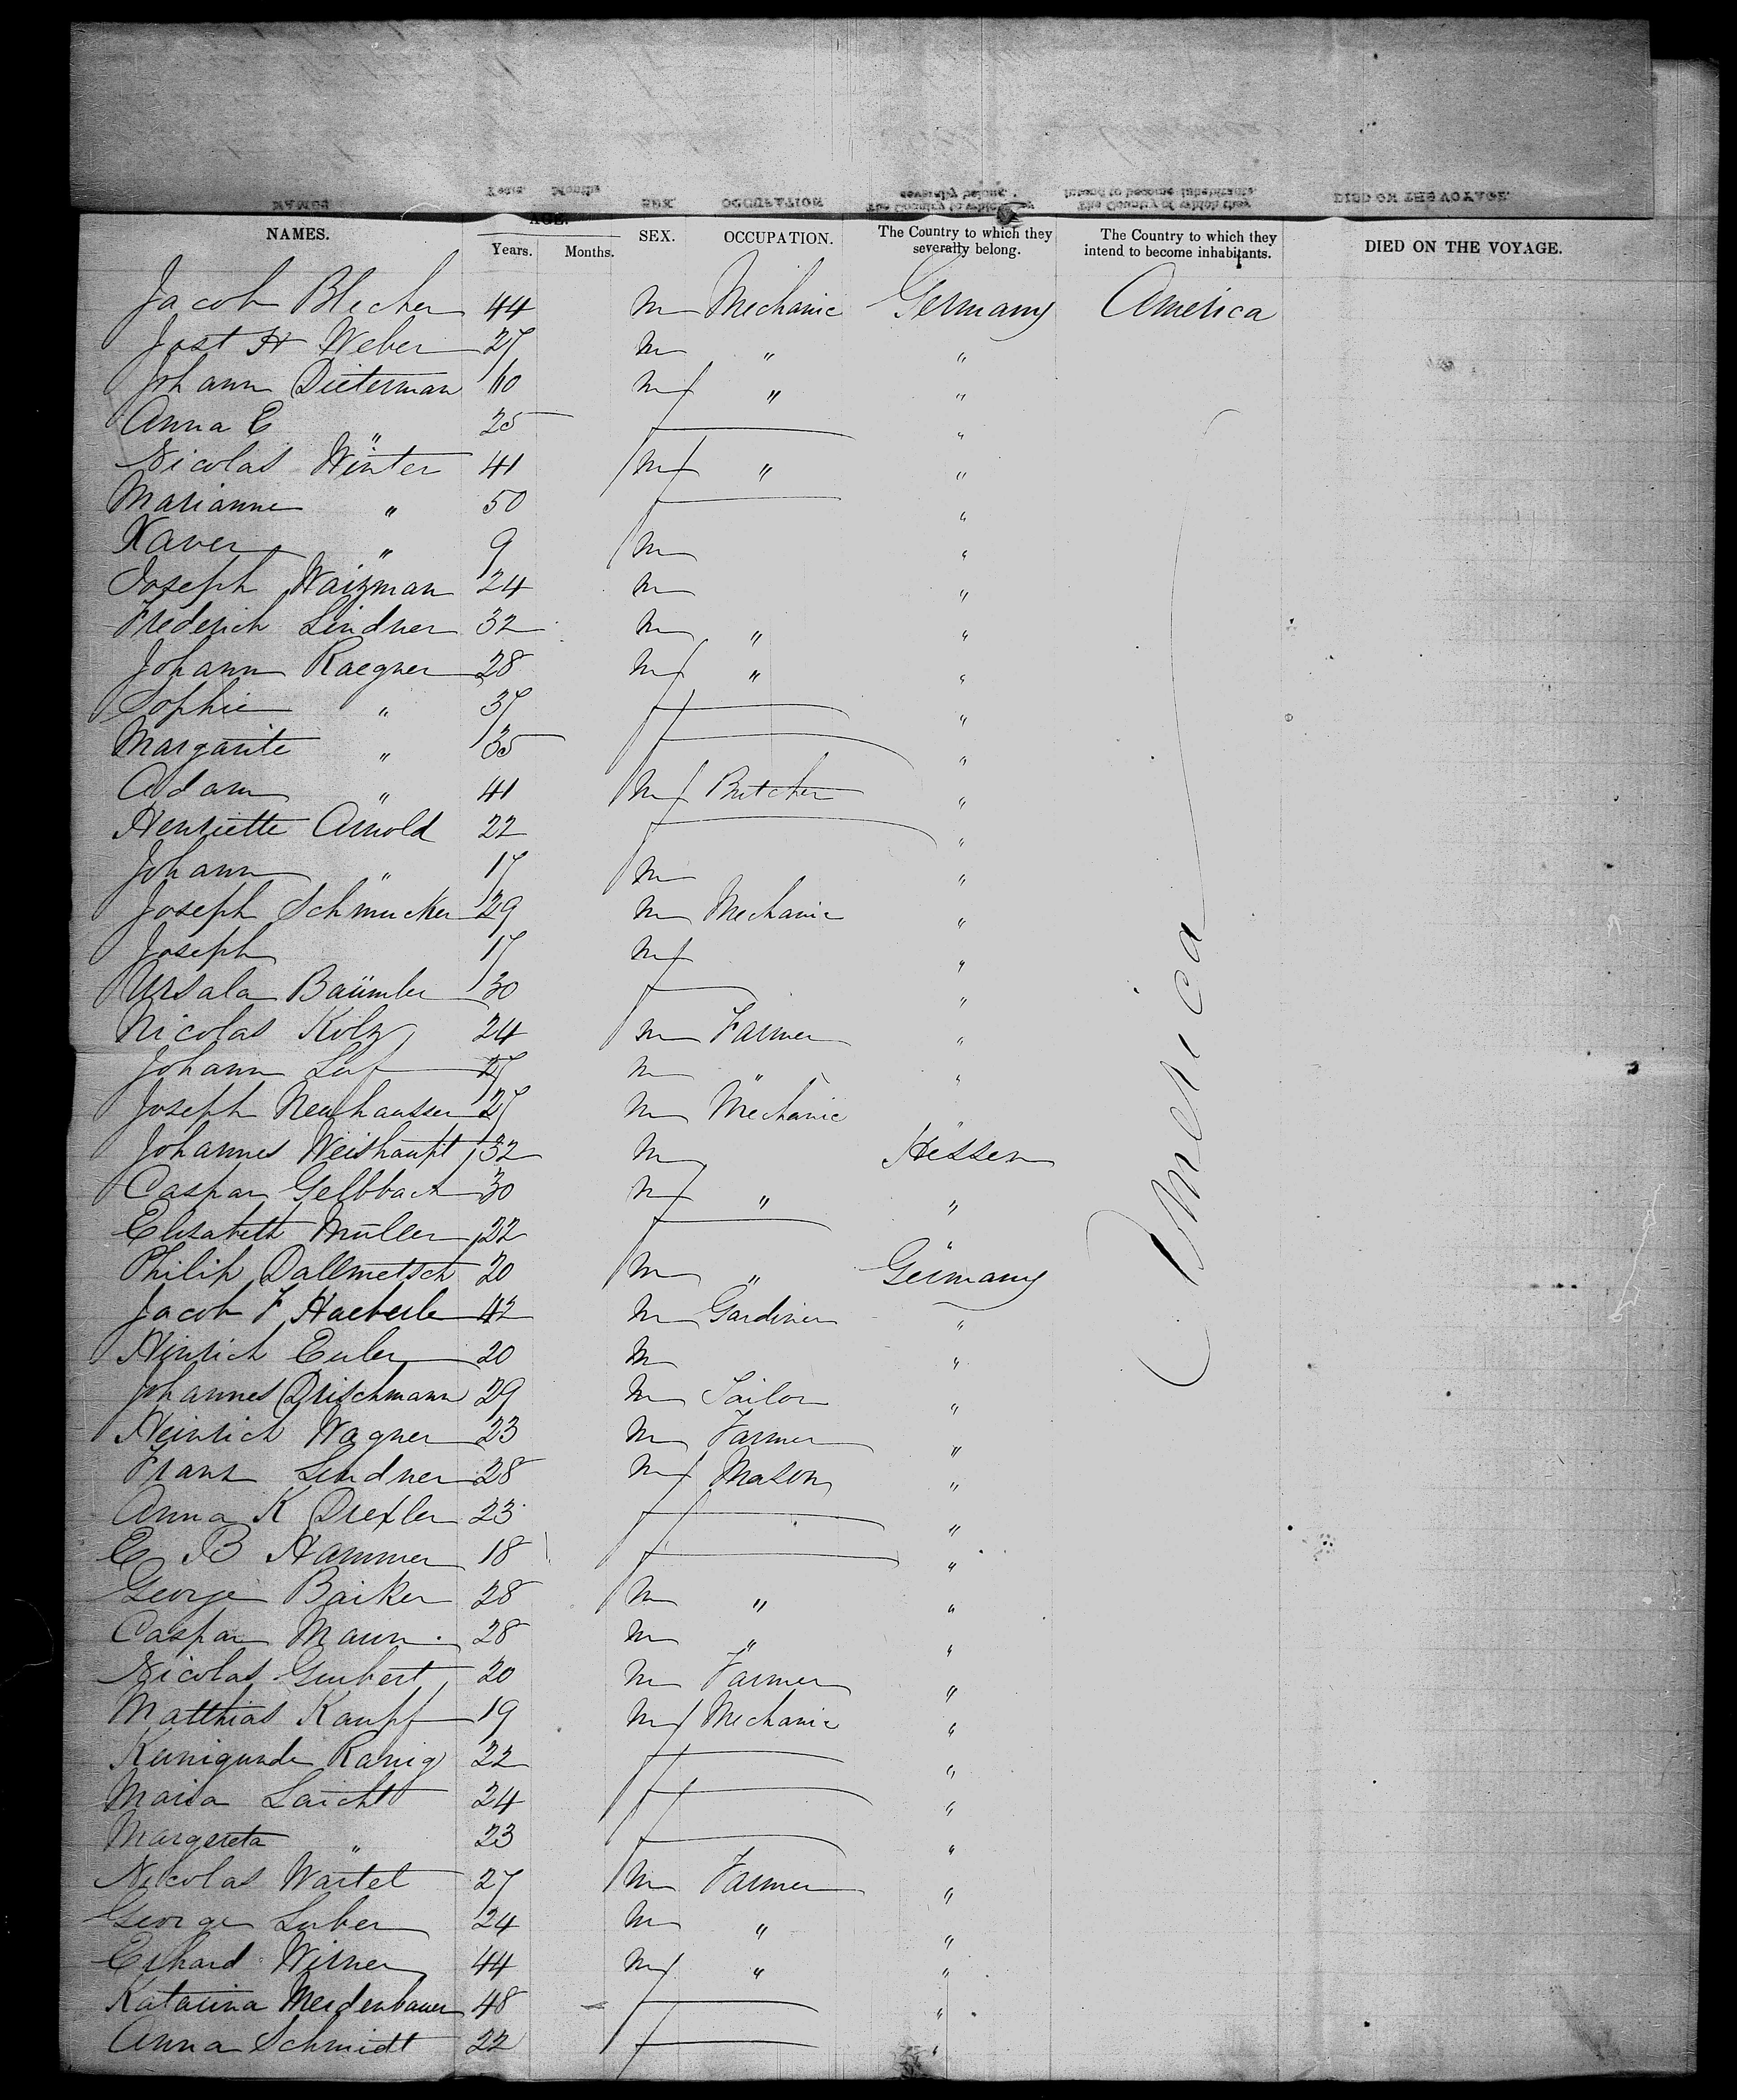 NAMES. AGE. SEX. OCCUPATION. The Country to which they severally belong. The Country to which they intend to become inhabitants. DIED ON THE VOYAGE.
Years. Months.
Jacob Blecher 44 m Mechanic Germany America
Jost H Weber 27 m " "
Johann Dieterman 60 m " "
Anna E " 25 f "
Nicolas Winter 41 m " "
Marianne " 50 f "
Xaver " 9 m "
Joseph Waizman 24 m "
Frederich Lindner 32 m " "
Johann Raegner 28 m " "
Sophie " 37 f "
Margarite " 35 f "
Adam " 41 m Butcher "
Henriette Arnold 22 f "
Johann " 17 m "
Joseph Schmucker 29 m Mechanic "
Joseph 17 m "
Ursala Baümler 30 f "
Nicolas Kolz 24 m Farmer "
Johann 27 m " "
Joseph Neuhausser 27 m Mechanic "
Johannes Weishaupt 32 m Hessen
Caspar Gelbbach 30 m " "
Elisabeth Müller 22 f "
Philip Dallmetsch 20 m " Germany
Jacob F Haeberle 42 m Gardiner "
Hinrich Euler 20 m "
Johannes Drischmann 29 m Tailor "
Heinrich Wagner 23 m Farmer "
Franz Lindner 28 m Mason "
Anna K Drexler 23 f "
E B Hammer 18 f "
George Baiker 28 m " "
Caspar Maun 28 m " "
Nicolas Gumbert 20 m Farmer "
Matthias Kaupf 19 m Mechanic "
Kunigunde Ranig 22 f "
Maria Laicht 24 f "
Margereta " 23 f "
Nicolas Wartel 27 m Farmer "
George Luber 24 m " "
Erhard Wirner 44 m " "
Katarina Meidenbauer 48 f "
Anna Schmidt 22 f "
America